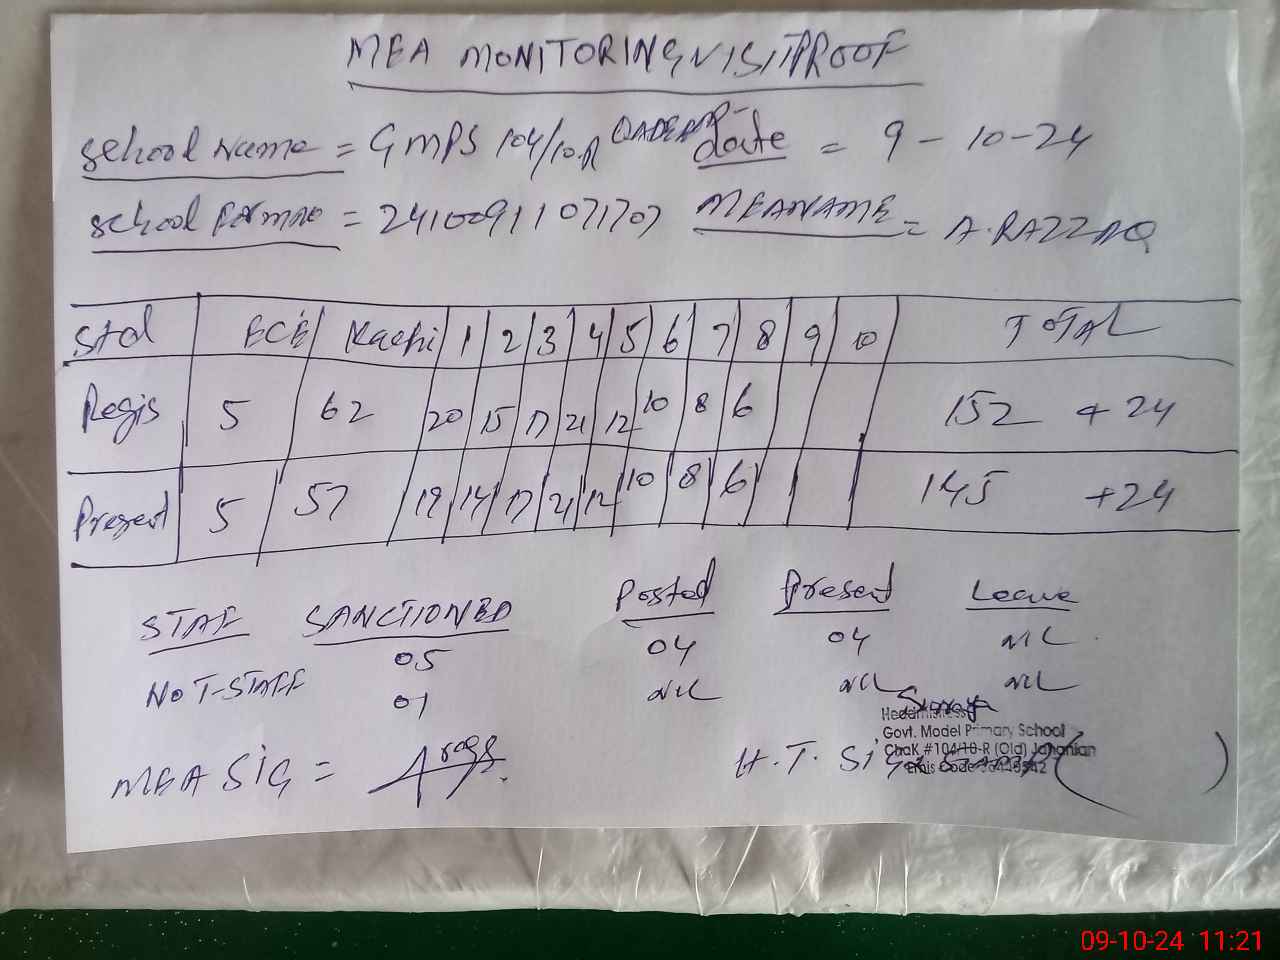 MEA MONITORING VISIT PROOF
School Name = GMPS 104/10.R date = 9-10-24
School Form no = 24100911071707 MEA NAME = A. RAZZAQ
Std ECE Kachi 1 2 3 4 5 6 7 8 9 10 TOTAL
Regis 5 62 20 15 17 21 12 10 8 6 152 + 24
Present 5 57 19 14 17 21 12 10 8 6 145 +24
STAF SANCTIONED Posted Present Leave
05 04 04 NIL
NOT-STAFF 01 NIL NIL NIL
Headmistress
Govt. Model Primary School
Chak #104/10-R (Old) Jahanian
Emis Code
MEA SIG = H.T. SIG
09-10-24 11:21